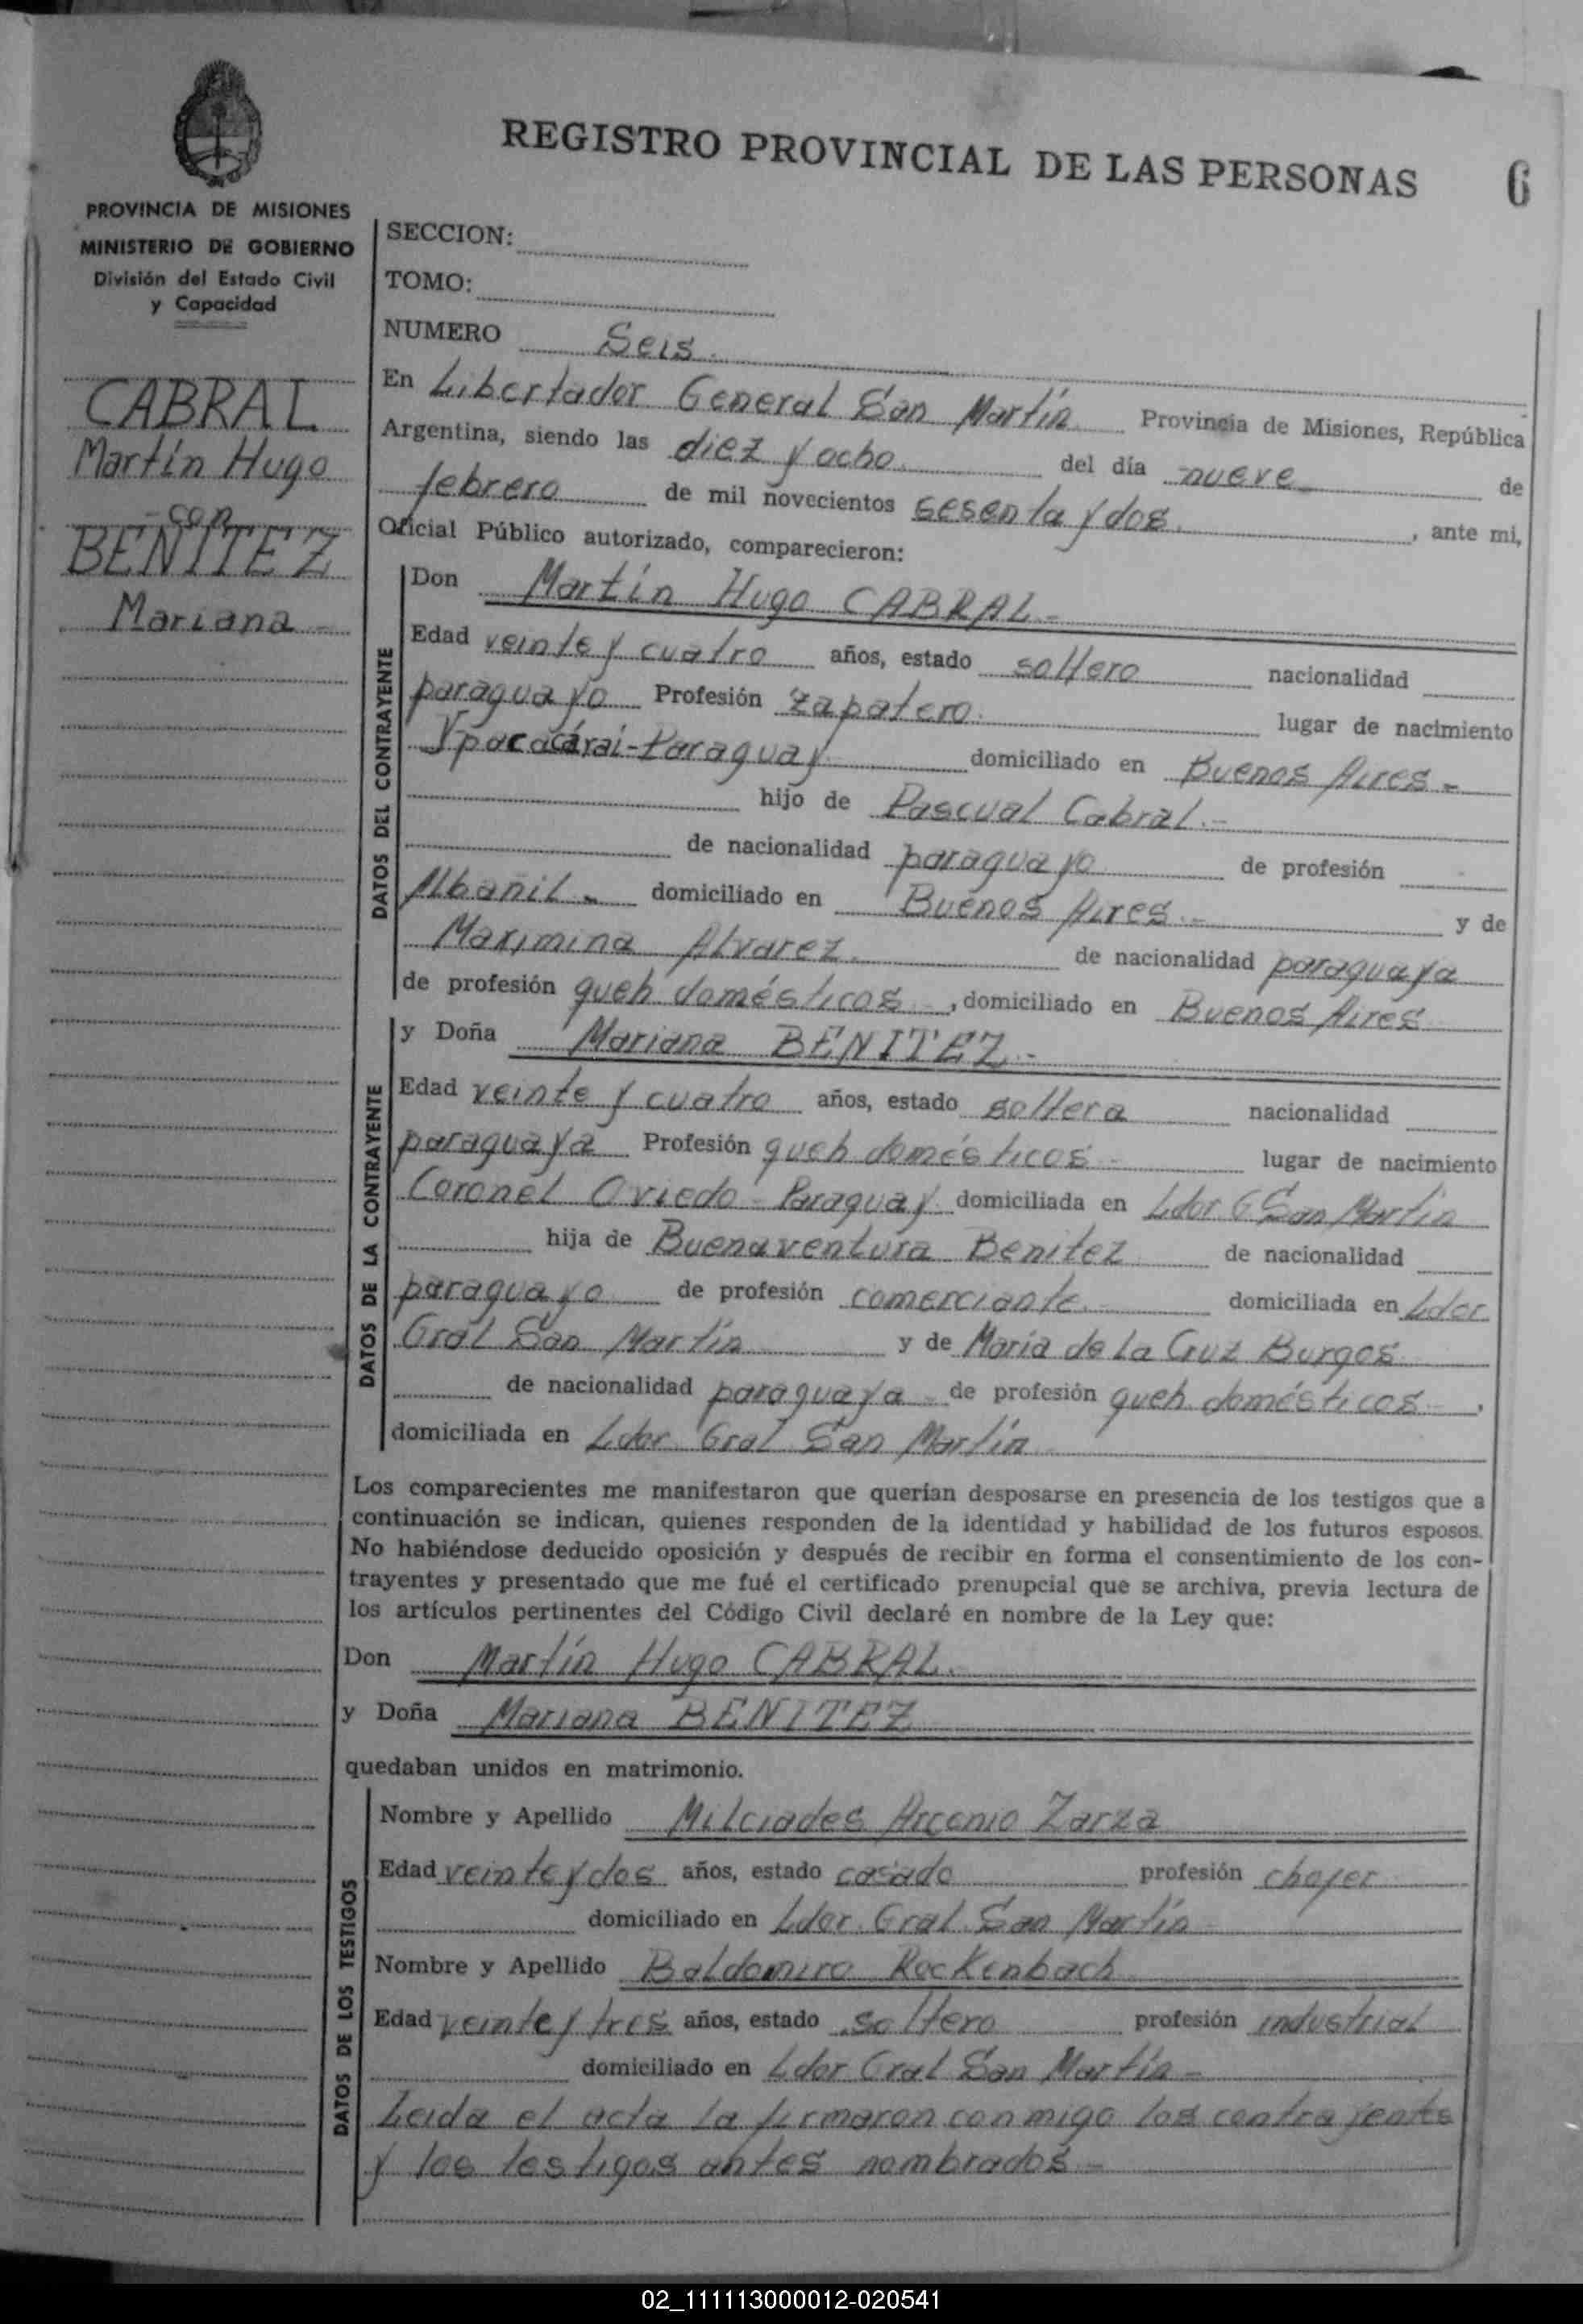 REGISTRO PROVINCIAL DE LAS PERSONAS
6
PROVINCIA DE MISIONES
MINISTERIO DE GOBIERNO
División del Estado Civil
y Capacidad
CABRAL
Martín Hugo
- con
BENITEZ
Mariana -
SECCION:
TOMO:
NUMERO Seis.
En Libertador General San Martín Provincia de Misiones, República
Argentina, siendo las diez y ocho del día nueve de
febrero de mil novecientos sesenta y dos. , ante mi,
Oficial Público autorizado, comparecieron:
DATOS DEL CONTRAYENTE
Don Martín Hugo CABRAL.-
Edad veinte y cuatro años, estado soltero nacionalidad
paraguayo Profesión zapatero. lugar de nacimiento
Ypacacárai-Paraguay domiciliado en Buenos Aires -
hijo de Pascual Cabral.-
de nacionalidad paraguayo de profesión
Albañil - domiciliado en Buenos Aires.- y de
Maximina Alvarez. de nacionalidad paraguaya
de profesión queh domésticos , domiciliado en Buenos Aires
DATOS DE LA CONTRAYENTE
y Doña Mariana BENITEZ.-
Edad veinte y cuatro años, estado soltera nacionalidad
paraguaya Profesión queh domésticos - lugar de nacimiento
Coronel Oviedo - Paraguay. domiciliada en Ldor G San Martín
hija de Buenaventura Benitez de nacionalidad
paraguayo de profesión comerciante - domiciliada en Ldor
Gral San Martín y de María de la Cruz Burgos
de nacionalidad paraguaya - de profesión queh domésticos - ,
domiciliada en Ldor Gral San Martín
Los comparecientes me manifestaron que querían desposarse en presencia de los testigos que a
continuación se indican, quienes responden de la identidad y habilidad de los futuros esposos.
No habiéndose deducido oposición y después de recibir en forma el consentimiento de los con-
trayentes y presentado que me fué el certificado prenupcial que se archiva, previa lectura de
los artículos pertinentes del Código Civil declaré en nombre de la Ley que:
Don Martín Hugo CABRAL.
y Doña Mariana BENITEZ
quedaban unidos en matrimonio.
DATOS DE LOS TESTIGOS
Nombre y Apellido Milciades Arcenio Zarza
Edad veinte y dos años, estado casado profesión chofer
domiciliado en Ldor. Gral. San Martín
Nombre y Apellido Baldomiro Rockenbach
Edad veinte y tres años, estado soltero profesión industrial
domiciliado en Ldor Gral San Martín -
Leida el acta la firmaron conmigo los contrayentes
y los testigos antes nombrados -
02_111113000012-020541